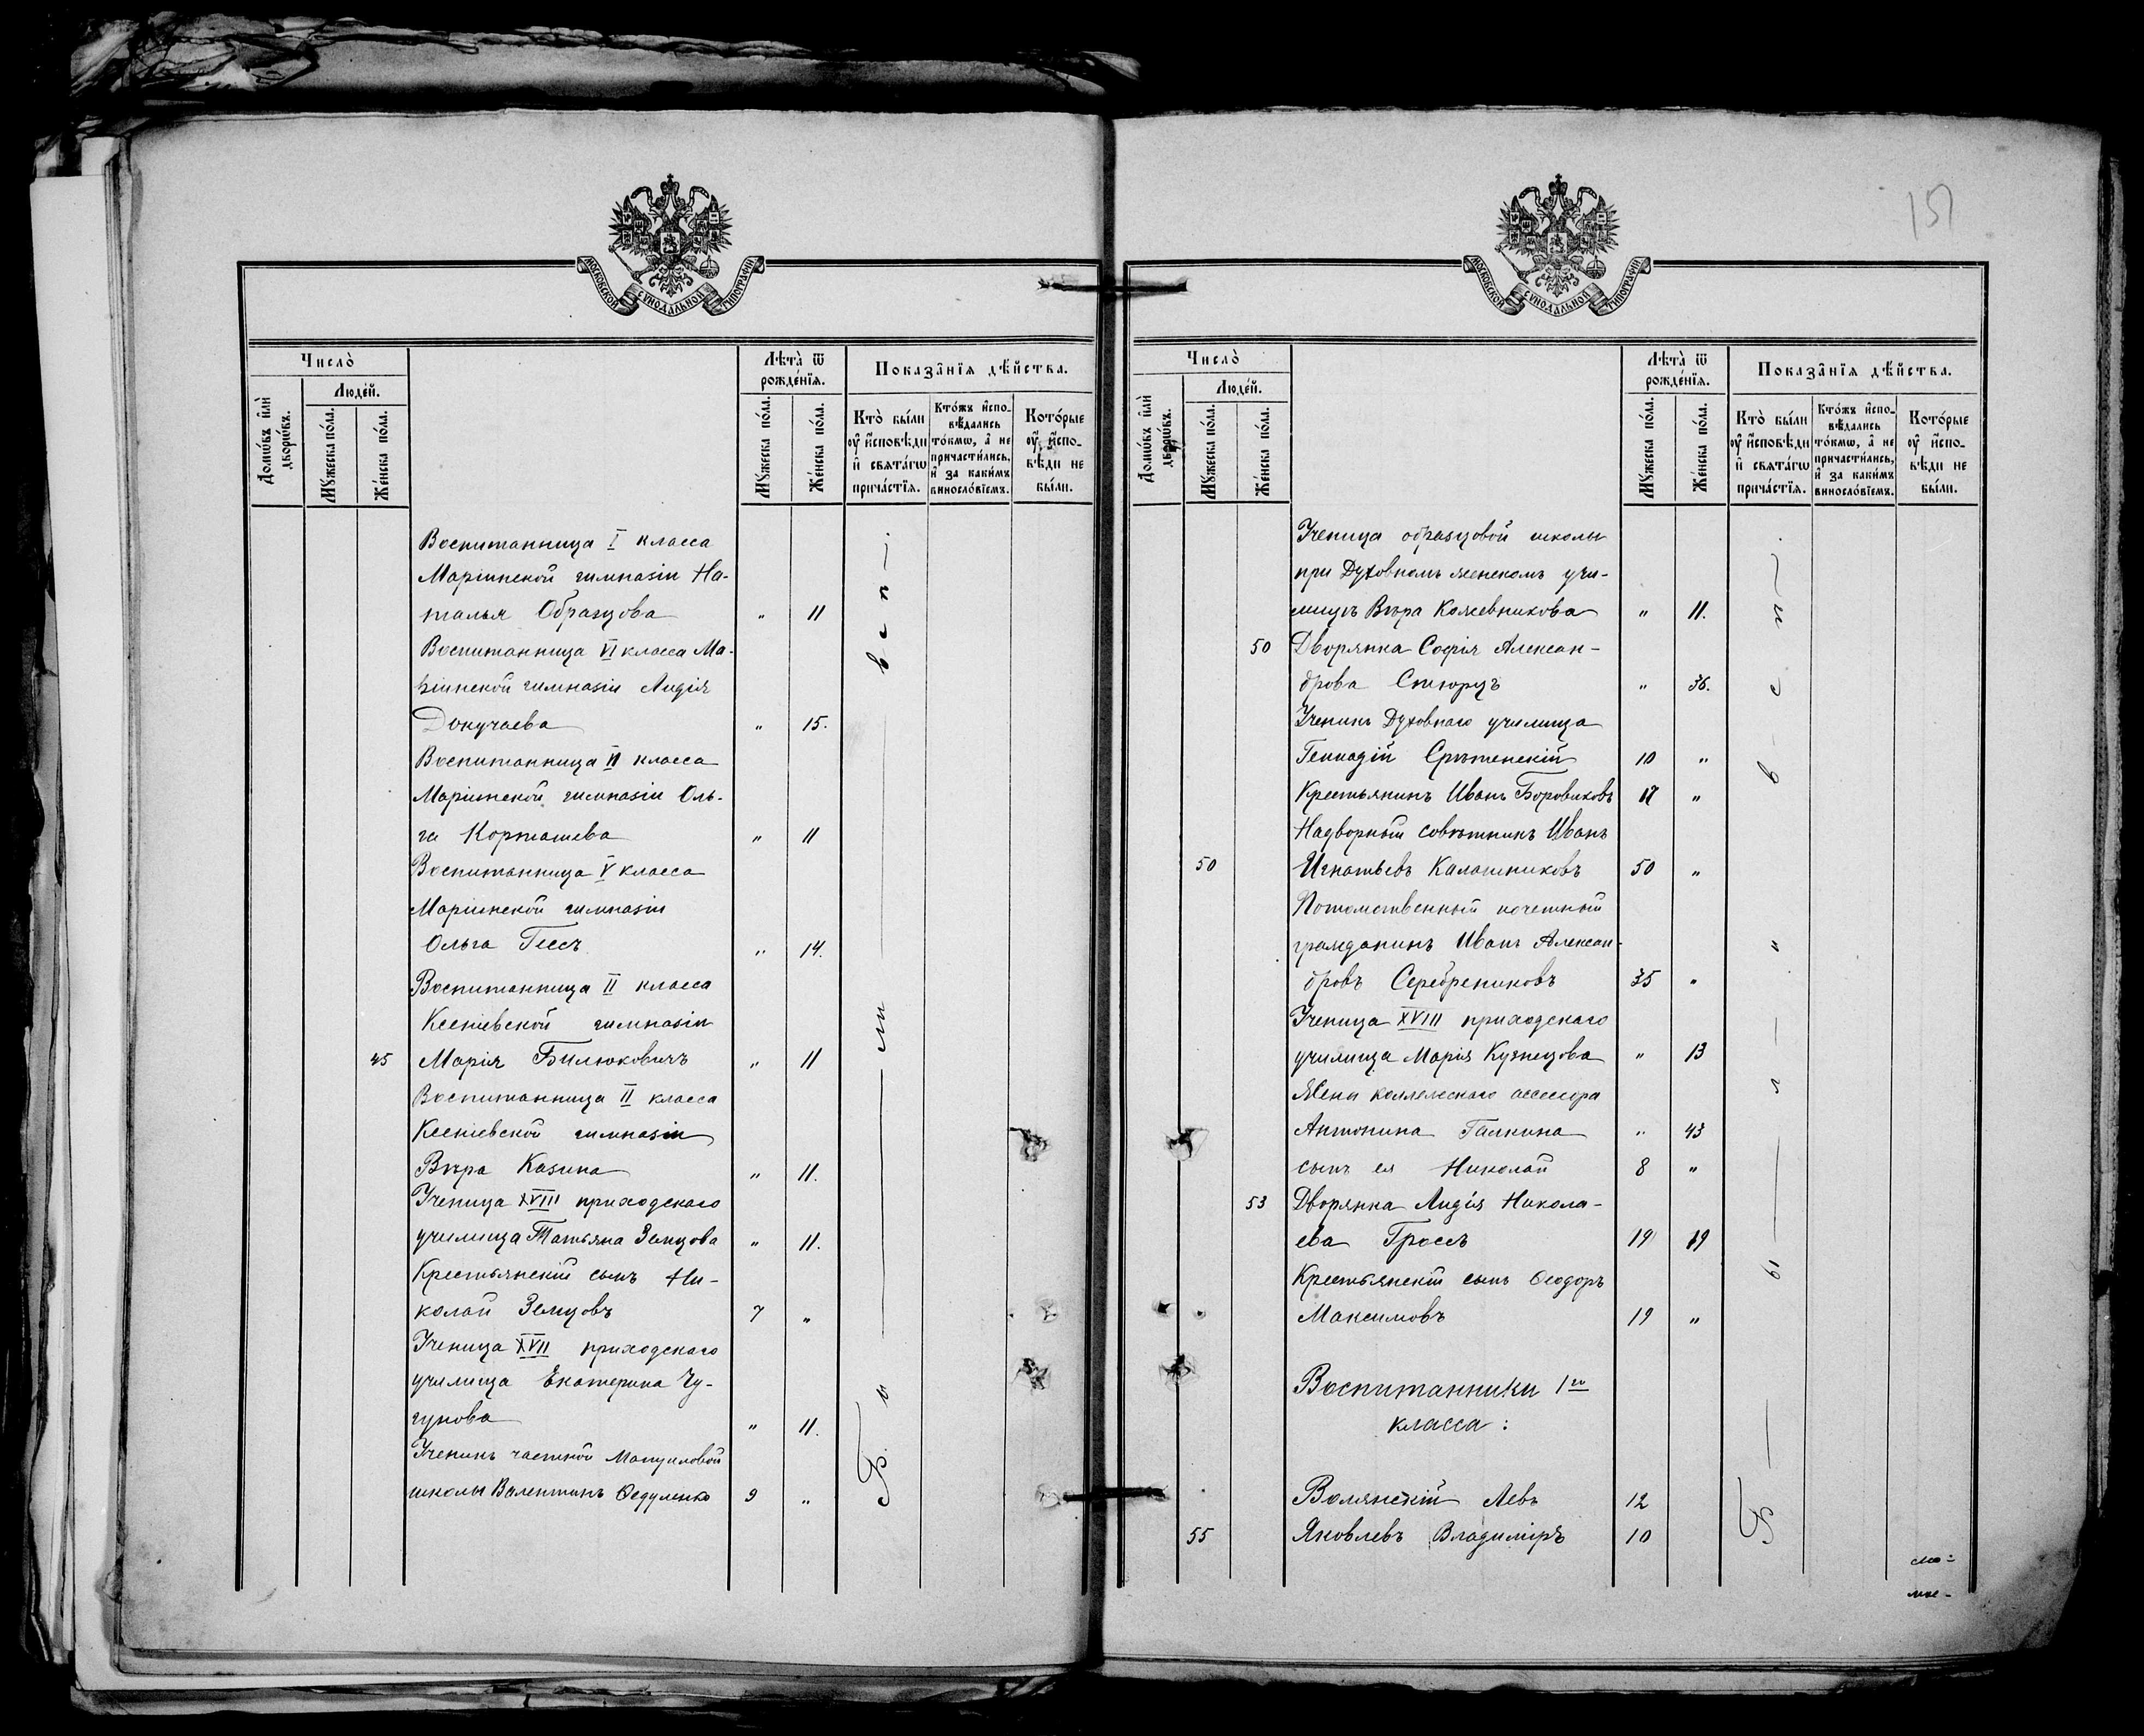 МОСКОВСКОЙ СѴНОДАЛЬНОЙ ТИПОГРАФІИ
Число̀
Людей.
Домѡвъ или дворѡвъ.
Мꙋжеска пола.
Женска пола.
Лѣта ѿ рожденїѧ.
Мꙋжеска пола.
Женска пола.
Показанїѧ дѣйства.
Кто были оу исповѣди и свѧтагѡ причастїѧ.
Ктожъ исповѣдались токмѡ, а не причастились, и за какимъ винословїемъ.
Которые оу исповѣди не были.
Воспитанница I класса
Маріинской гимназіи На-
талья Образцова " 11
Воспитанница VI класса Ма-
ріинской гимназіи Лидія
Докучаева " 15.
Воспитанница II класса
Маріинской гимназіи Оль-
га Корташева " 11
Воспитанница V класса
Маріинской гимназіи
Ольга Гессъ " 14.
Воспитанница II класса
Ксеніевской гимназіи
45 Марія Билюковичъ " 11
Воспитанница II класса
Ксеніевской гимназіи
Вѣра Казина " 11.
Ученица XVIII приходскаго
училища Татьяна Земцова " 11.
Крестьянскій сынъ Ни-
колай Земцовъ 7 "
Ученица XVII приходскаго
училища Екатерина Чу-
гунова " 11.
Ученикъ частной
школы Валентинъ Ѳедуленко 9 "
151
МОСКОВСКОЙ СѴНОДАЛЬНОЙ ТИПОГРАФІИ
Число̀
Людей.
Домѡвъ или дворѡвъ.
Мꙋжеска пола.
Женска пола.
Лѣта ѿ рожденїѧ.
Мꙋжеска пола.
Женска пола.
Показанїѧ дѣйства.
Кто были оу исповѣди и свѧтагѡ причастїѧ.
Ктожъ исповѣдались токмѡ, а не причастились, и за какимъ винословїемъ.
Которые оу исповѣди не были.
Ученица образцовой школы
при Духовномъ женскомъ учи-
лищѣ Вѣра Кожевникова " 11.
50 Дворянка Софія Алексан-
дрова Стюрцъ " 36.
Ученикъ Духовнаго училища
Геннадій Срѣтенскій 10 "
Крестьянинъ Иванъ Боровиковъ 17 "
Надворный совѣтникъ Иванъ
50 Игнатьевъ Калашниковъ 50 "
Потомственный почетный
гражданинъ Иванъ Алексан-
дровъ Серебрениковъ 35 "
Ученица XVIII приходскаго
училища Марія Кузнецова " 13
Жена коллежскаго ассесора
Антонина Галкина " 43
сынъ ея Николай 8 "
53 Дворянка Лидія Никола-
ева Гроссъ 19 19
Крестьянскій сынъ Ѳеодоръ
Максимовъ 19 "
Воспитанники 1го
класса:
Волянскій Левъ 12
55 Яковлевъ Владиміръ 10